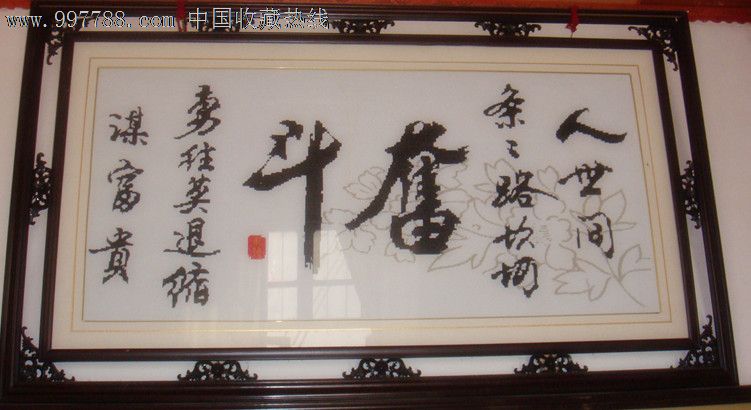 www.997788.com 中国收藏热线
人世间
条々路坎坷
奮斗
勇往莫退缩
谋富貴